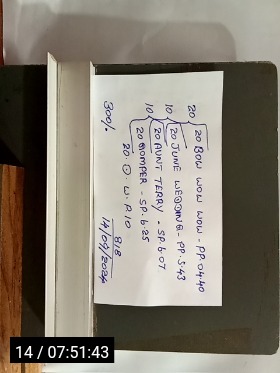 20 { 20 BOW WOW WOW - PP.04.40
10 { 20 JUNE WEDDING - PP.5.43
10 { 20 AUNT TERRY - SP.6.07
20 ROMPER - SP.6.25
20 ① W.P.10
300/.
818
14/07/2024
14 / 07:51:43